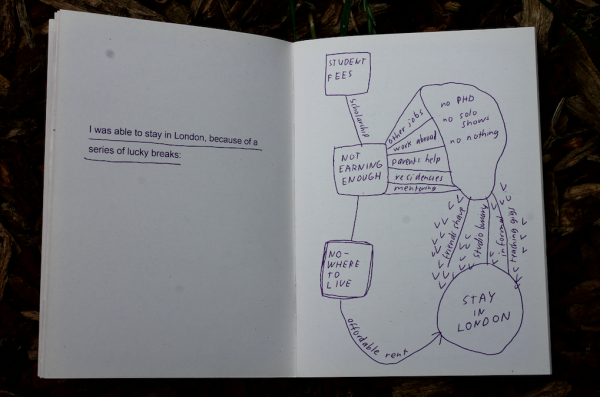 I was able to stay in London, because of a
series of lucky breaks:
STUDENT
FEES
scholarship
NOT
EARNING
ENOUGH
other jobs
work abroad
parents help
residencies
mentoring
no PHD
no solo
shows
no nothing
NO-
WHERE
TO
LIVE
affordable rent
friends share
studio
informal
teaching gigs
STAY
IN
LONDON